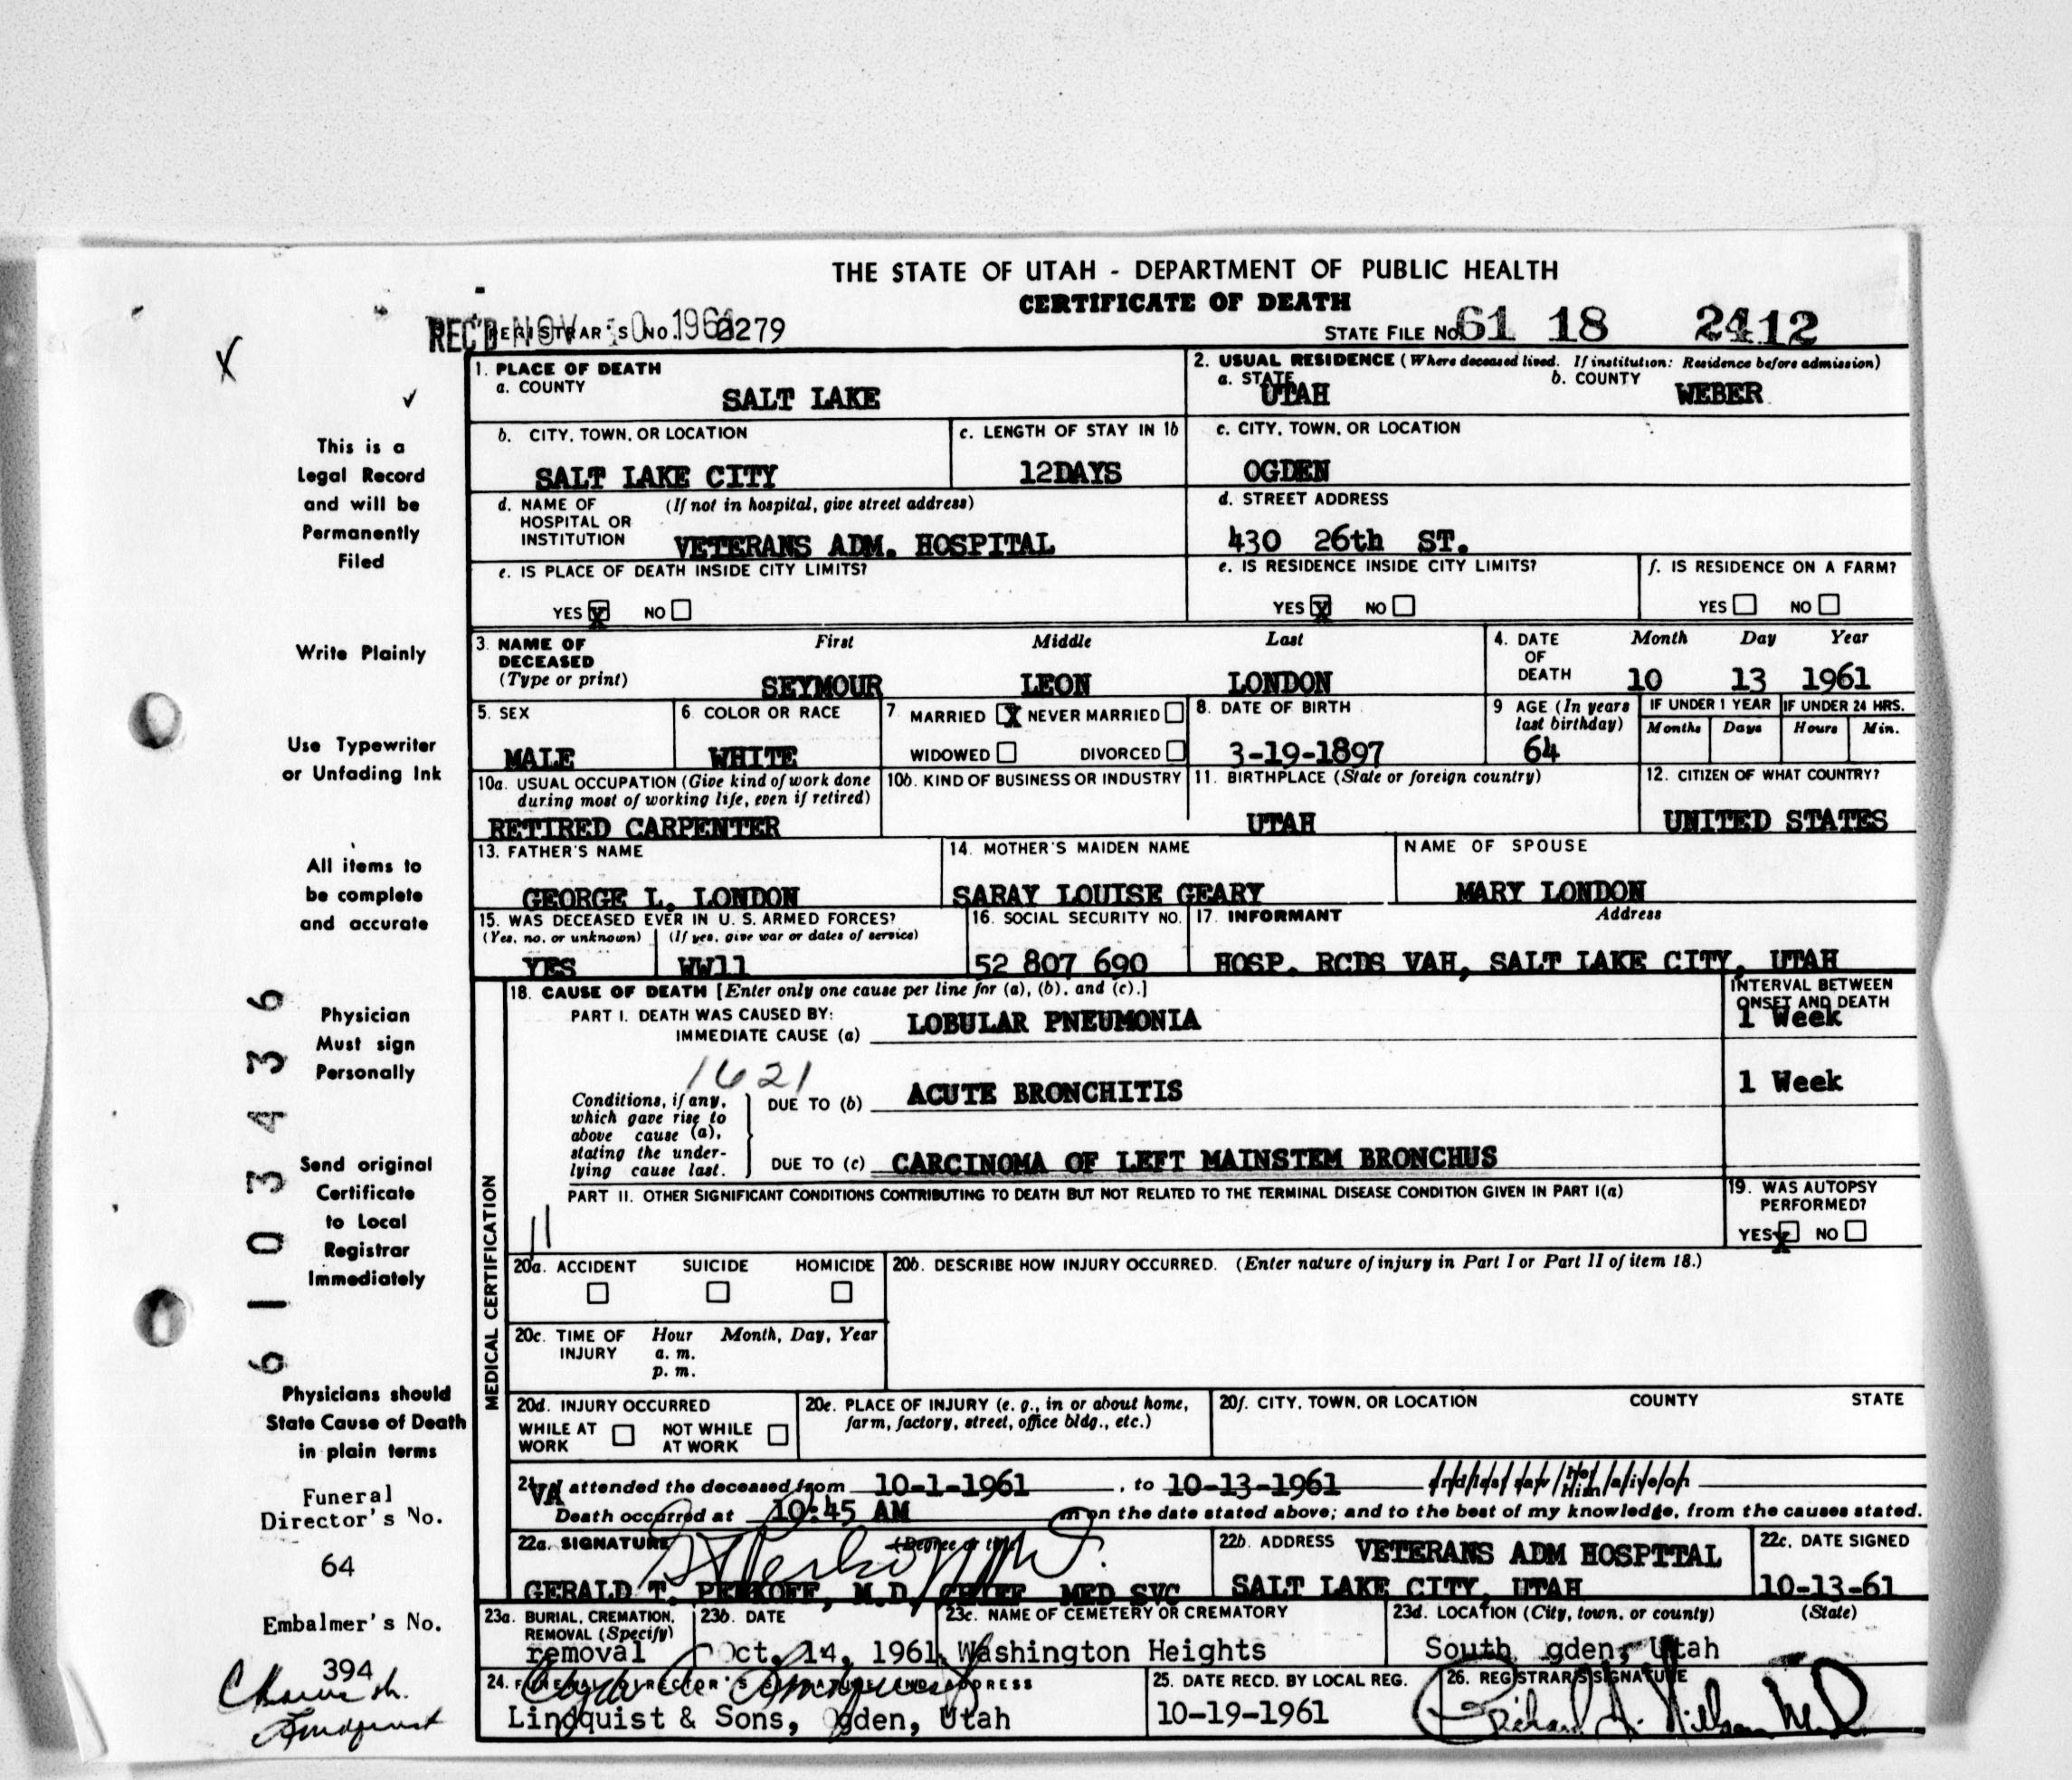 THE STATE OF UTAH - DEPARTMENT OF PUBLIC HEALTH
CERTIFICATE OF DEATH
REC'D NOV 10 1961 REGISTRAR'S NO. 2279
STATE FILE NO. 61 18 2412
1. PLACE OF DEATH
a. COUNTY SALT LAKE
2. USUAL RESIDENCE (Where deceased lived. If institution: Residence before admission)
a. STATE UTAH b. COUNTY WEBER
b. CITY, TOWN, OR LOCATION SALT LAKE CITY
c. LENGTH OF STAY IN 1b 12DAYS
c. CITY, TOWN, OR LOCATION OGDEN
d. NAME OF HOSPITAL OR INSTITUTION (If not in hospital, give street address)
VETERANS ADM. HOSPITAL
d. STREET ADDRESS
430 26th ST.
e. IS PLACE OF DEATH INSIDE CITY LIMITS?
YES X NO
e. IS RESIDENCE INSIDE CITY LIMITS?
YES X NO
f. IS RESIDENCE ON A FARM?
YES NO
3. NAME OF DECEASED (Type or print)
First Middle Last
SEYMOUR LEON LONDON
4. DATE OF DEATH Month Day Year
10 13 1961
5. SEX MALE
6. COLOR OR RACE WHITE
7. MARRIED X NEVER MARRIED
WIDOWED DIVORCED
8. DATE OF BIRTH 3-19-1897
9. AGE (In years last birthday) 64
IF UNDER 1 YEAR Months Days
IF UNDER 24 HRS. Hours Min.
10a. USUAL OCCUPATION (Give kind of work done during most of working life, even if retired)
RETIRED CARPENTER
10b. KIND OF BUSINESS OR INDUSTRY
11. BIRTHPLACE (State or foreign country)
UTAH
12. CITIZEN OF WHAT COUNTRY?
UNITED STATES
13. FATHER'S NAME
GEORGE L. LONDON
14. MOTHER'S MAIDEN NAME
SARAY LOUISE GEARY
NAME OF SPOUSE
MARY LONDON
15. WAS DECEASED EVER IN U. S. ARMED FORCES?
(Yes, no, or unknown) (If yes, give war or dates of service)
YES WW11
16. SOCIAL SECURITY NO.
52 807 690
17. INFORMANT Address
HOSP. RCDS VAH, SALT LAKE CITY, UTAH
MEDICAL CERTIFICATION
18. CAUSE OF DEATH [Enter only one cause per line for (a), (b), and (c).]
INTERVAL BETWEEN ONSET AND DEATH
PART I. DEATH WAS CAUSED BY:
IMMEDIATE CAUSE (a) LOBULAR PNEUMONIA 1 Week
1621
Conditions, if any, which gave rise to above cause (a), stating the underlying cause last.
DUE TO (b) ACUTE BRONCHITIS 1 Week
DUE TO (c) CARCINOMA OF LEFT MAINSTEM BRONCHUS
PART II. OTHER SIGNIFICANT CONDITIONS CONTRIBUTING TO DEATH BUT NOT RELATED TO THE TERMINAL DISEASE CONDITION GIVEN IN PART I(a)
11
19. WAS AUTOPSY PERFORMED?
YES X NO
20a. ACCIDENT SUICIDE HOMICIDE
20b. DESCRIBE HOW INJURY OCCURRED. (Enter nature of injury in Part I or Part II of item 18.)
20c. TIME OF INJURY Hour Month, Day, Year
a. m.
p. m.
20d. INJURY OCCURRED
WHILE AT WORK NOT WHILE AT WORK
20e. PLACE OF INJURY (e. g., in or about home, farm, factory, street, office bldg., etc.)
20f. CITY, TOWN, OR LOCATION COUNTY STATE
21. VA attended the deceased from 10-1-1961, to 10-13-1961
Death occurred at 10:45 AM m on the date stated above; and to the best of my knowledge, from the causes stated.
22a. SIGNATURE (Degree or title)
GERALD T. PERKOFF, M.D. CHIEF MED SVC
22b. ADDRESS VETERANS ADM HOSPITAL
SALT LAKE CITY, UTAH
22c. DATE SIGNED
10-13-61
23a. BURIAL, CREMATION, REMOVAL (Specify)
removal
23b. DATE
Oct. 14, 1961
23c. NAME OF CEMETERY OR CREMATORY
Washington Heights
23d. LOCATION (City, town, or county) (State)
South Ogden, Utah
24. FUNERAL DIRECTOR'S SIGNATURE AND ADDRESS
Lindquist & Sons, Ogden, Utah
25. DATE RECD. BY LOCAL REG.
10-19-1961
26. REGISTRAR'S SIGNATURE
This is a
Legal Record
and will be
Permanently
Filed
Write Plainly
Use Typewriter
or Unfading Ink
All items to
be complete
and accurate
Physician
Must sign
Personally
Send original
Certificate
to Local
Registrar
Immediately
Physicians should
State Cause of Death
in plain terms
Funeral
Director's No.
64
Embalmer's No.
394
6103436